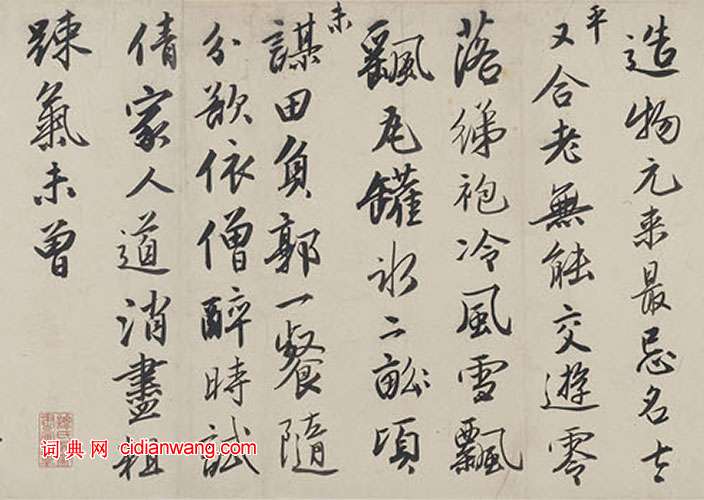 造物元来最忌名生
平又合老無能交遊零
落綈袍冷風雪飄
飄瓦罐氷二畝頃
未謀田負郭一餐隨
分欲依僧醉時試
倩家人道消盡粗
踈氣未曾
词典网 cidianwang.com